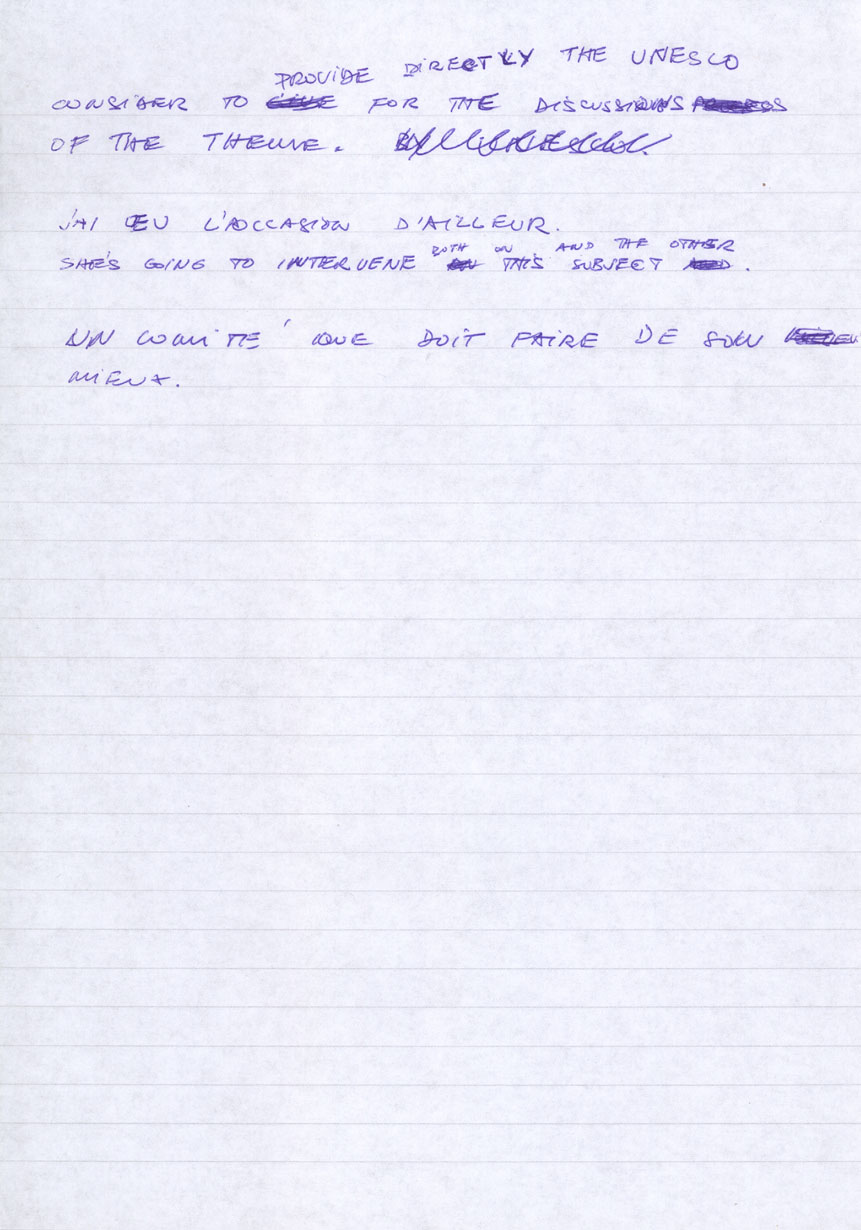 PROVIDE DIRECTLY THE UNESCO
CONSIDER TO FOR THE DISCUSSIONS
OF THE THEME.
J'AI EU L'OCCASION D'AILLEUR.
BOTH ON AND THE OTHER
SHE'S GOING TO INTERVENE THIS SUBJECT .
UN COMITÉ QUE DOIT FAIRE DE SON
MIEUX.